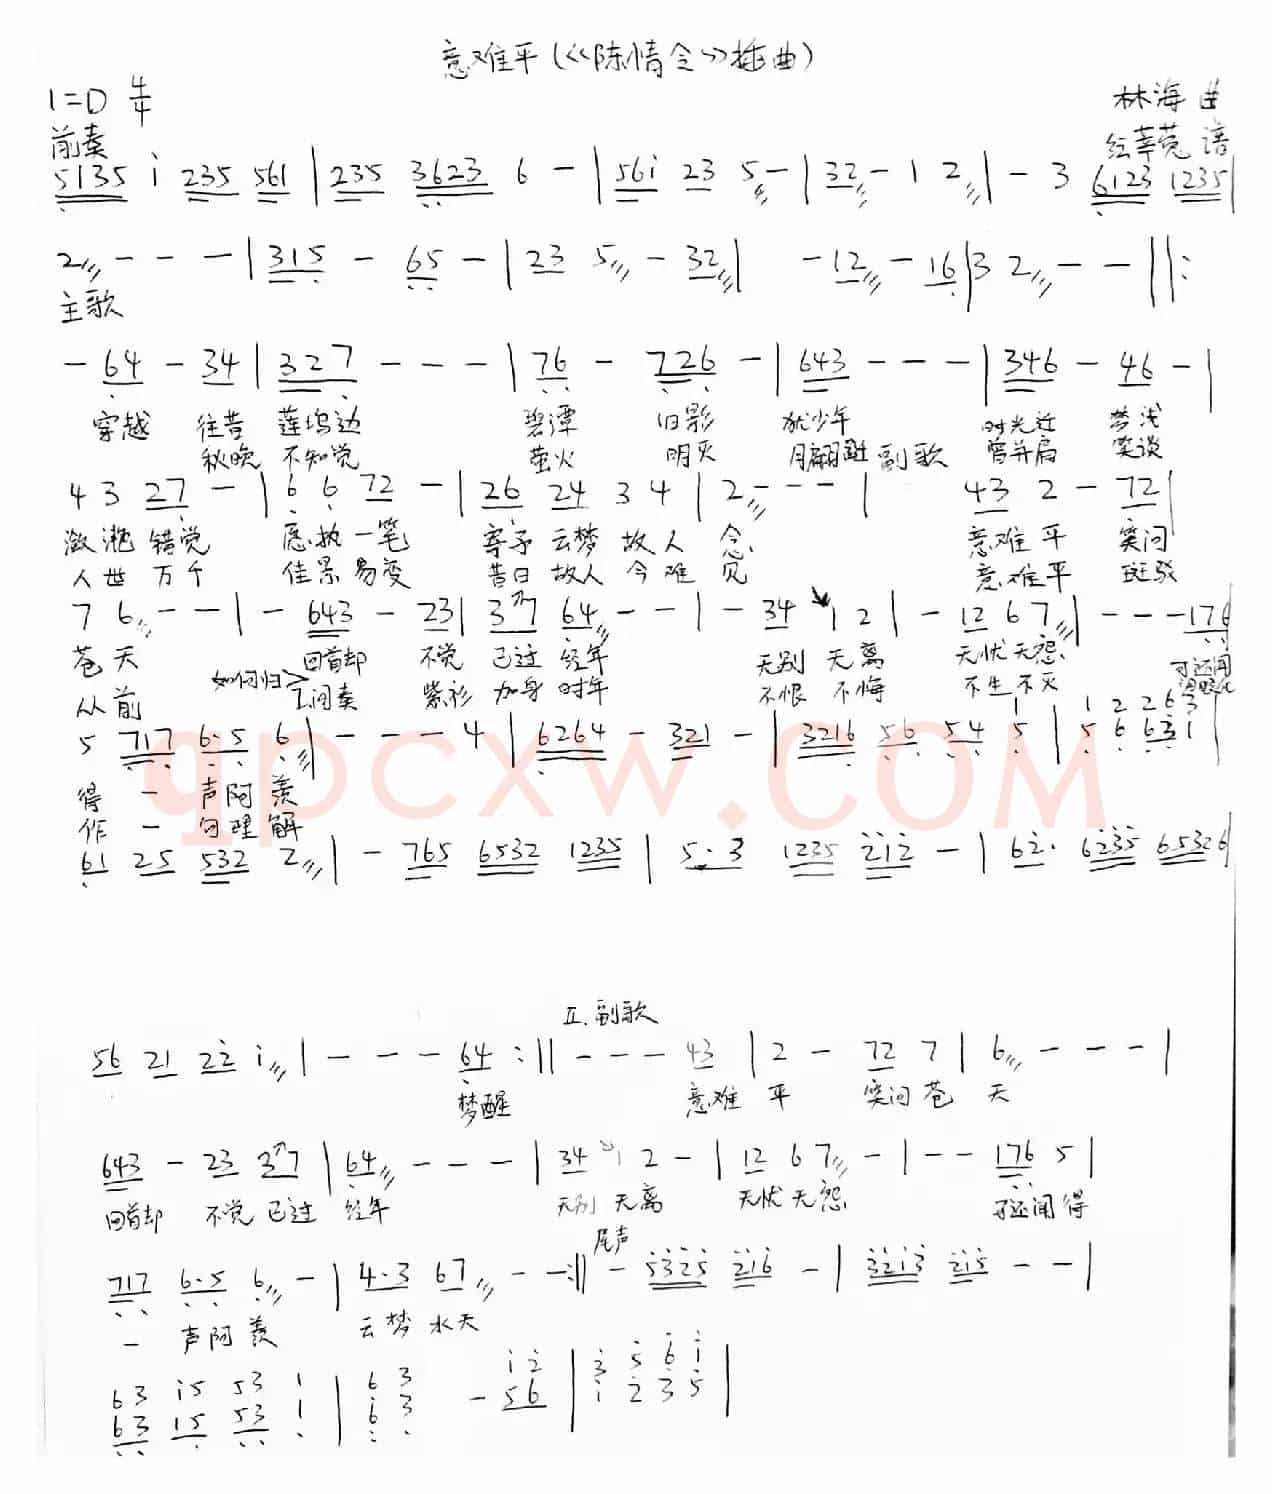 意难平(《陈情令》插曲)
1=D 4/4
林海 曲
前奏
5135 i 235 561 | 235 3623 6 - | 56i 23 5 - | 32 - 1 2 | - 3 6123 1235 |
2 - - - | 315 - 65 - | 23 5 - 32 | - 12 - 16 | 3 2 - - ||:
主歌
- 64 - 34 | 327 - - - | 76 - 726 - | 643 - - - | 346 - 46 - |
穿越 往昔 莲坞边 碧潭 旧影 犹少年 时光迁 梦浅
秋晚 不知觉 萤火 明灭 月翩跹 副歌 曾并肩 笑谈
4 3 27 - | 6 6 72 - | 26 24 3 4 | 2 - - - | 43 2 - 72 |
潋滟 错觉 愿执一笔 寄予 云梦 故人 念 意难平 笑问
人世 万千 佳景易变 昔日 故人 今难 见 意难平 斑驳
7 6 - - | - 643 - 23 | 37 64 - - | - 34 1 2 | - 12 6 7 | - - - 176
苍天 回首却 不觉 已过 经年 无别 无离 无忧无怨 可还闻
从前 如何归> I.间奏 紫衫 加身 时年 不恨 不悔 不生不灭
5 717 6·5 6 | - - - 4 | 6264 - 321 - | 3216 56 54 5 | 5 6 631 |
1 1 2 2 6 3
得 一 声阿羡
作 一 句理解
61 25 532 2 | - 765 6532 1235 | 5·3 1235 212 - | 62· 6235 65326
qpcxw.com
II.副歌
56 21 22 i | - - - 64 :|| - - - 43 | 2 - 72 7 | 6 - - - |
梦醒 意难 平 笑问苍 天
643 - 23 37 | 64 - - - | 34 1 2 - | 12 6 7 - | - - 176 5 |
回首却 不觉 已过 经年 无别 无离 无忧无怨 可还闻 得
尾声
717 6·5 6 - | 4·3 67 - - :|| - 5325 216 - | 3213 215 - - |
一 声阿 羡 云梦 水天
63 i5 53 1 | 6 3 i 2 | 3 5 6 i
63 15 53 1 | 6 3 - 56 | i 2 3 5 |